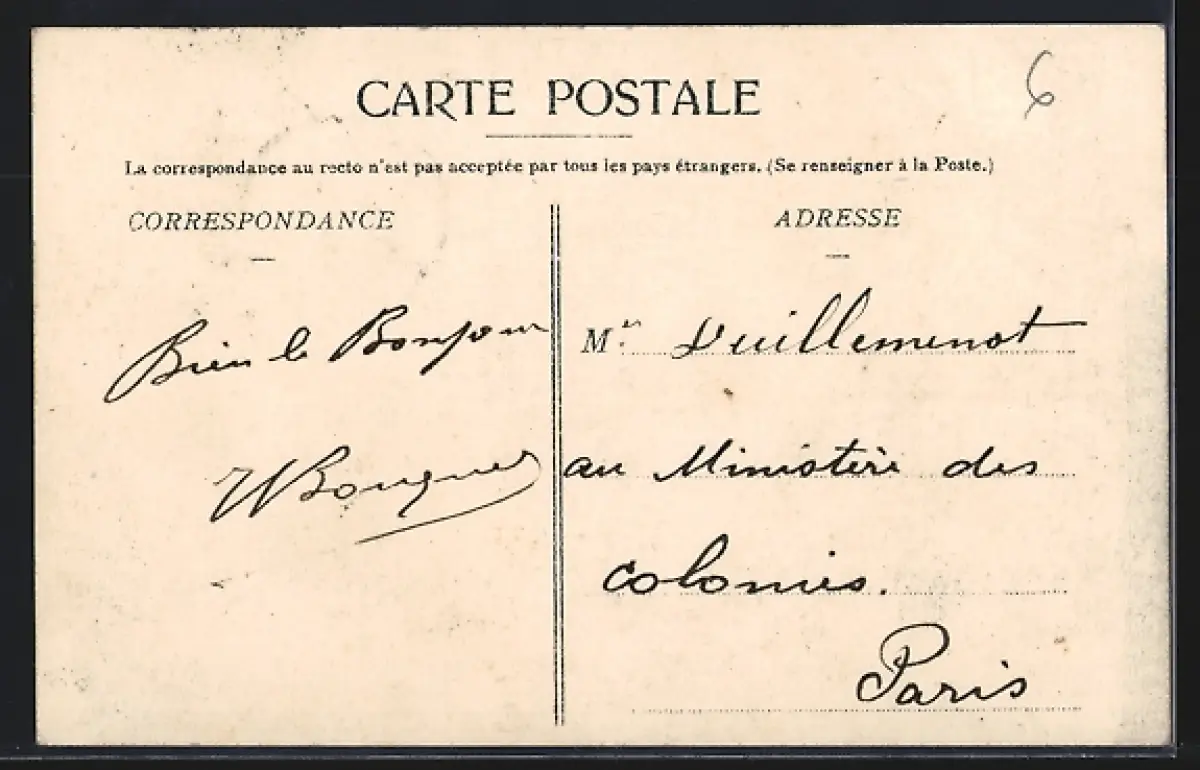 CARTE POSTALE
6
La correspondance au recto n'est pas acceptée par tous les pays étrangers. (Se renseigner à la Poste.)
CORRESPONDANCE
Bien le Bonjour
ADRESSE
Mr. Vuillemenot
au Ministère des
colonies.
Paris